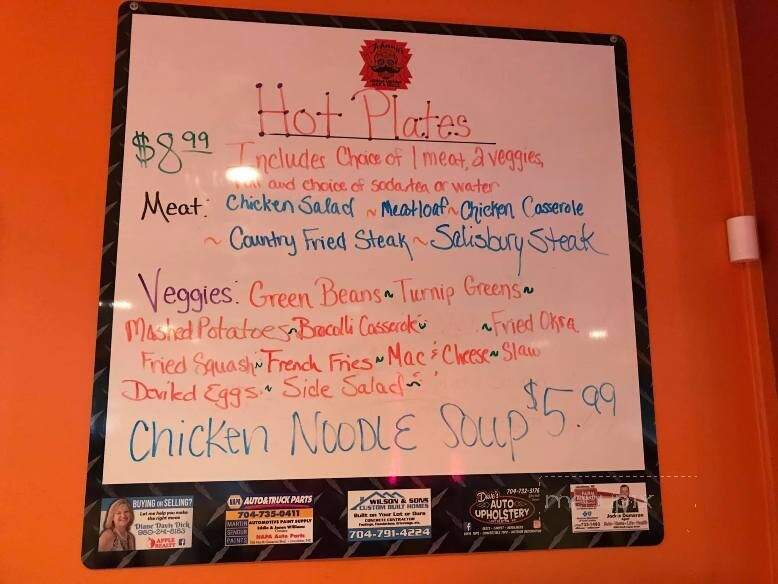 Hot Plates
$8.99 Includes Choice of 1 meat, 2 veggies,
and choice of soda, tea or water
Meat: Chicken Salad ~ Meatloaf ~ Chicken Casserole
~ Country Fried Steak ~ Salisbury Steak
Veggies: Green Beans ~ Turnip Greens ~
Mashed Potatoes ~ Brocolli Casserole ~ Fried Okra
Fried Squash ~ French Fries ~ Mac & Cheese ~ Slaw
Deviled Eggs ~ Side Salad ~
Chicken NOODLE Soup $5.99
BUYING or SELLING?
Let me help you make
the right move!
Diane Davis Dick
APPLE
REALTY
NAPA AUTO & TRUCK PARTS
704-735-0411
MARTIN SENOUR PAINTS
AUTOMOTIVE PAINT SUPPLY
NAPA Auto Parts
WILSON & SONS
CUSTOM BUILT HOMES
Built on Your Lot or Ours
CONCRETE CONTRACTOR
704-791-4224
704-732-5176
Dave's
AUTO
UPHOLSTERY